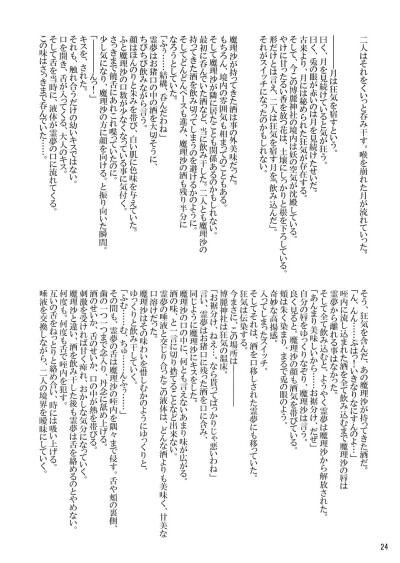 二人はそれをぐいっと呑み干す。喉を崩れた月が流れていった。
――月は狂気を宿すという。
曰く、月を見続けていると気が狂う。
曰く、兎の眼が赤いのは月を見続けたせいだ。
古来より、月には秘められた狂気が存在する。
そして、今この博麗神社の境内には幻の空気が沈殿している。
やけに甘ったるい香りを放つ花が、貪欲にしっかりと根を下ろしている。
形だけとは言え、二人は狂気を宿す月を、飲み込んだ。
それがスイッチになったのかもしれない。
魔理沙が持ってきた酒は事の外美味だった。
もちろん、境内の雰囲気も相まってのこともある。
そして魔理沙が隣に居たことも関係あるのかもしれない。
最初に呑んでいた酒など、当に飲み干した。二人とも魔理沙の
持ってきた酒を飲み切ってしまうのを避けるように、ゆっくり、
そしてどんどんペースも進み、魔理沙の酒も残り半分に
なろうとしていた。
「ふぅ……結構、呑んだわね」
霊夢もお猪口の中の酒を大切そうに、
ちびちび飲みながら言う。
顔はほんのりと赤みを帯び、白い肌に色味を与えていた。
ふと魔理沙の口数が少なくなっている事に気付く。
さっきまで饒舌にあれこれ喋っていたのに。
少し気になり、魔理沙の方に顔を向ける。と振り向いた瞬間。
「――んっ!」
キスを、された。
それも、触れ合うだけの幼いキスではない。
口を開き、舌が入ってくる、大人のキス。
そして舌を当時に、液体が霊夢の口に流れてくる。
この味はさっきまで呑んでいた……。
そう、狂気を含んだ、あの魔理沙が持ってきた酒だ。
「ん、んんっ……ぷはっ…いきなりなにすんのよー」
咥内に流し込まれた酒を全て飲み込むまで魔理沙の唇は
霊夢から離れる事はなかった。
そして全て飲み込むと、ようやく霊夢は魔理沙から解放された。
「あんまり美味しいから……お裾分け、だぜ」
自分の唇をゆっくりなぞり、魔理沙は言う。
良く見ると、魔理沙の瞳は紅く、酒気を帯びている。
頬は朱く染まり、まるで兎の眼のよう。
奇妙な高揚感。
入ってしまったスイッチ。
そしてそれは、酒を口移しされた霊夢にも移っていた。
狂気は伝染する。
今まさに、この場所は、
博麗神社は狂気の温床。
「お裾分け、ねぇ…なら貰ってばっかりじゃ悪いわね」
言い、霊夢はお猪口に残った酒を口に含み、
同じように魔理沙にキスをした。
魔理沙の口の中に、何とも言えないあまり味が広がる。
酒の味、と一言に切り捨てることなど出来ない。
霊夢の唾液と交じり合ったこの液体は、どんな酒よりも美味く、甘美な
口溶けだった。
魔理沙はその味わいを惜しむかのようにゆっくりと、
ゆっくりと飲み干していく。
「ぷむ……む……ちゅ……んふぅ……」
その間も、霊夢の舌は魔理沙の咥内を隅々まで侵す。舌や頬の裏側、
歯の一つ一つまで念入り、丹念に舐め上げる。
酒のせいか、舌のせいか、口の中が熱を帯びる。
刺激を受ければ甘く痺れ、おかしな気分になっていく。
魔理沙と違い、酒を飲み干した後も霊夢は舌を絡めるのをやめない。
何度も、何度も舌で咥内を貪す。
互いの舌をねっとりと絡め合い、時には吸い上げる。
唾液を交換しながら、二人の境界を曖昧にしていく。
24